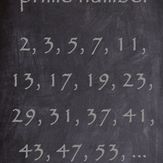 prime number
2, 3, 5, 7, 11,
13, 17, 19, 23,
29, 31, 37, 41,
43, 47, 53, ...